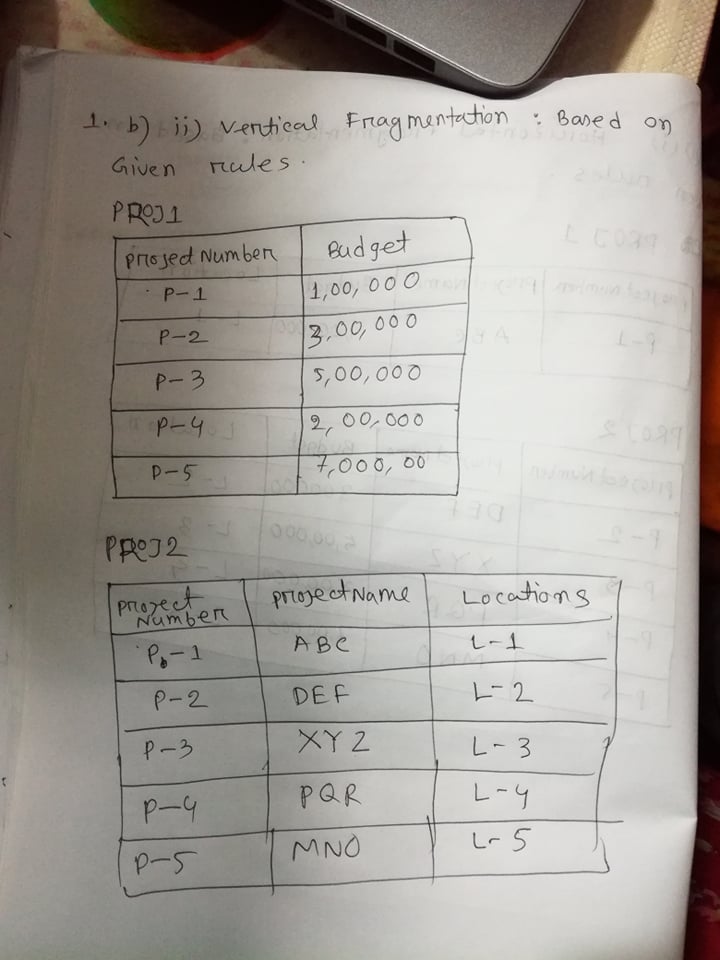 1. b) ii) Vertical Fragmentation : Based on
Given rules.
PROJ1
Project Number Budget
P-1 1,00,000
P-2 3,00,000
P-3 5,00,000
P-4 2,00,000
P-5 7,000,00
PROJ2
Project Number ProjectName Locations
P-1 ABC L-1
P-2 DEF L-2
P-3 XYZ L-3
P-4 PQR L-4
P-5 MNO L-5